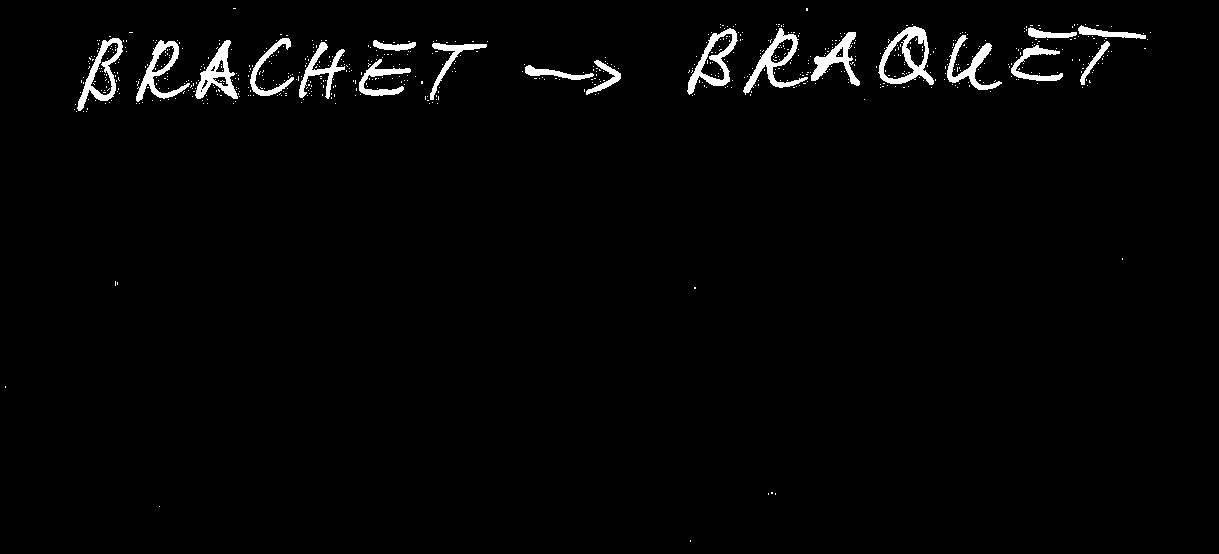 BRACHET → BRAQUET